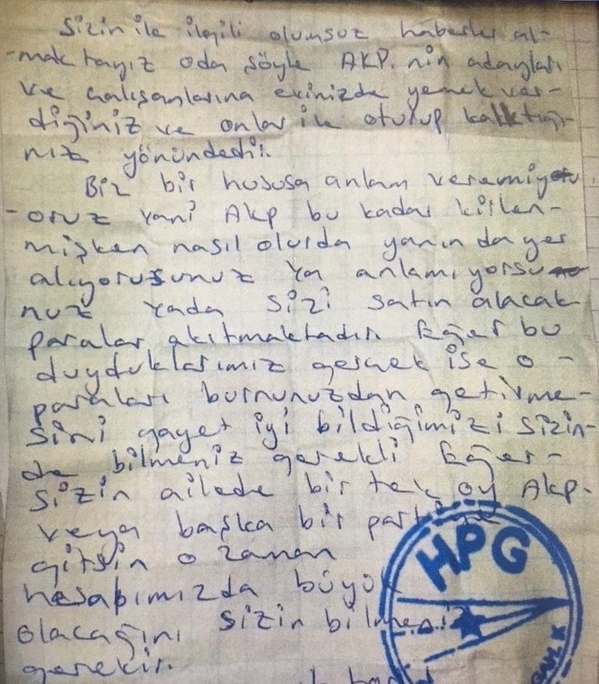 Sizin ile ilgili olumsuz haberler al-
-maktayız oda şöyle AKP.nin adayları
ve çalışanlarına evinizde yemek ver-
diğiniz ve onlar ile oturup kalktığı-
nız yönündedir.
Biz bir hususa anlam veremiy
-oruz yani Akp bu kadar kirlen-
mişken nasıl olurda yanında yer
alıyorsunuz ya anlamıyorsu
nuz yada sizi satın alacak
paralar akıtmaktadır Eğer bu
duyduklarımız gerçek ise o -
paraları burnunuzdan getirme-
sini gayet iyi bildiğimizi sizin-
de bilmeniz gerekli Eğer-
sizin ailede bir tek oy Akp-
veya başka bir partiye
gitsin o zaman
hesabımızda büyük
olacağını sizin bilmeniz
gerekir.
HPG